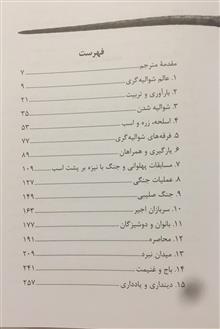 فهرست
مقدمهٔ مترجم ۷
۱. عالم شوالیه‌گری ۹
۲. بارآوری و تربیت ۲۱
۳. شوالیه شدن ۳۵
۴. اسلحه، زره و اسب ۵۳
۵. فرقه‌های شوالیه‌گری ۷۷
۶. یارگیری و همراهان ۸۹
۷. مسابقات پهلوانی و جنگ با نیزه بر پشت اسب ۱۰۹
۸. عملیات جنگی ۱۲۷
۹. جنگ صلیبی ۱۴۹
۱۰. سربازان اجیر ۱۶۳
۱۱. بانوان و دوشیزگان ۱۷۷
۱۲. محاصره ۱۹۱
۱۳. میدان نبرد ۲۰۹
۱۴. باج و غنیمت ۲۴۱
۱۵. دینداری و یادداری ۲۵۷